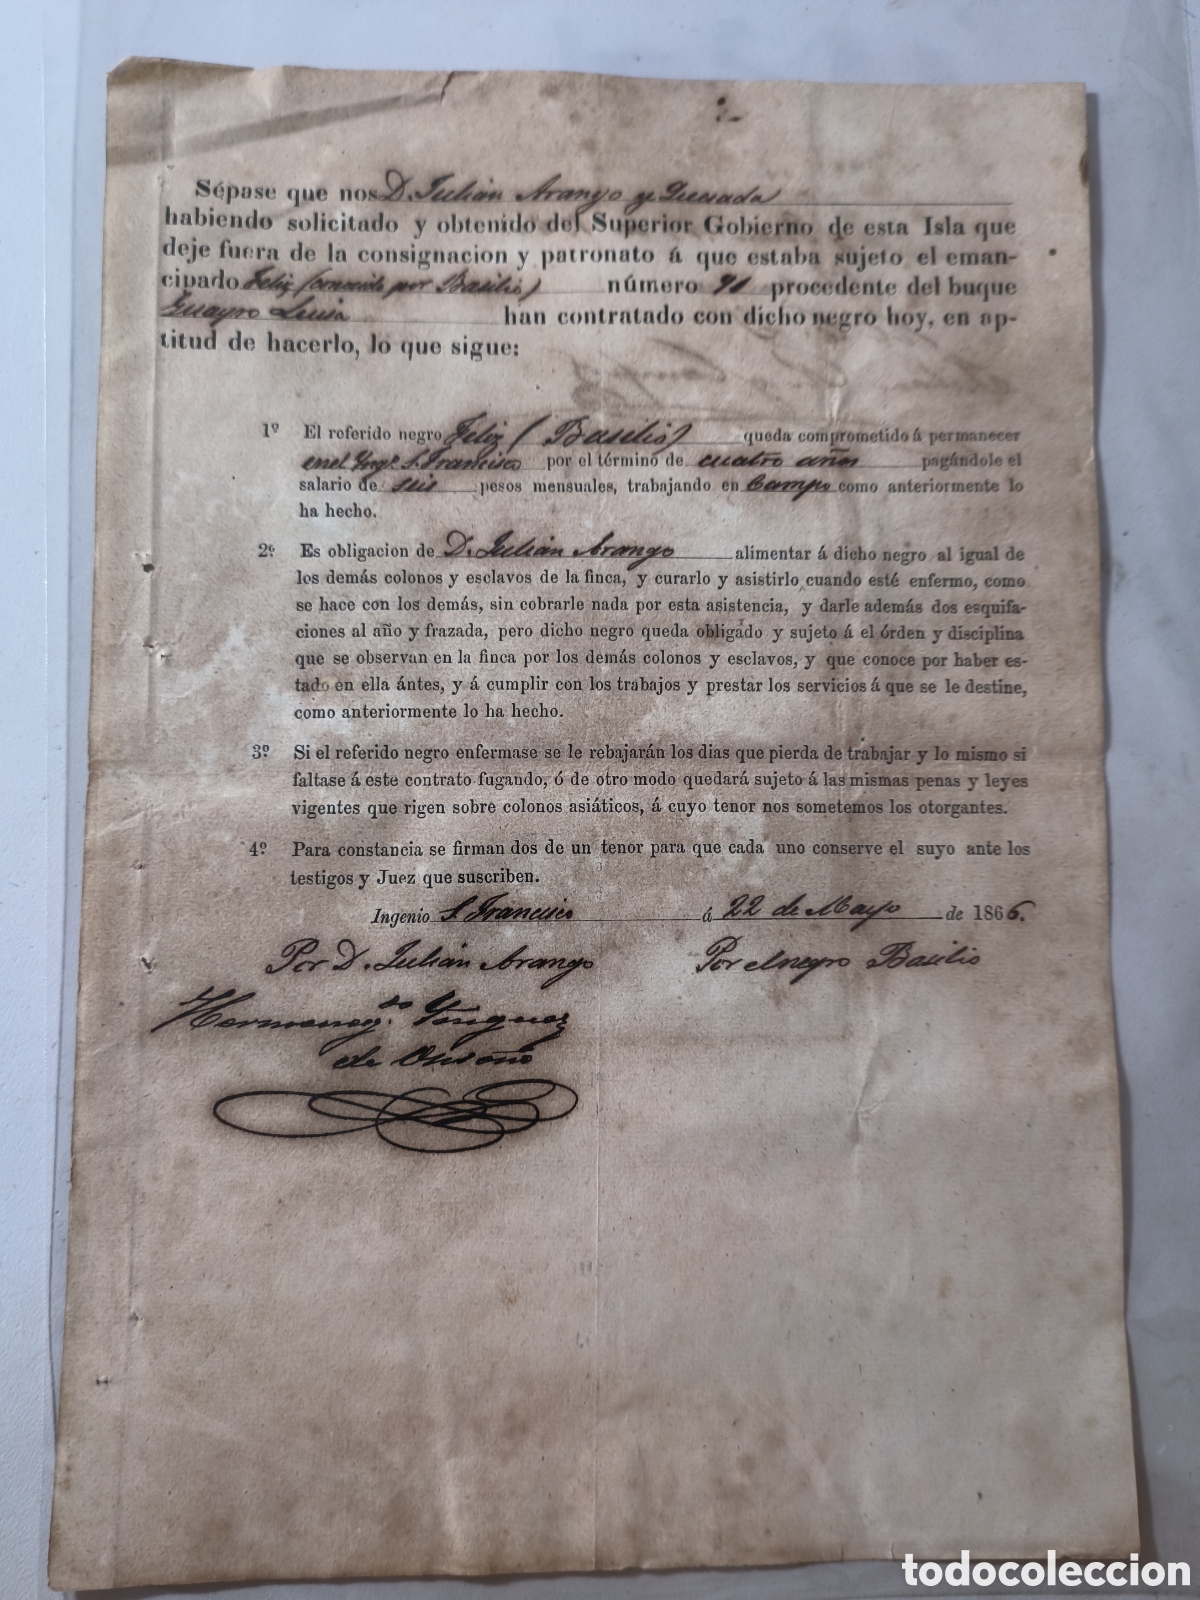 Sépase que nos D. Julián Arango y Quesada
habiendo solicitado y obtenido del Superior Gobierno de esta Isla que
deje fuera de la consignacion y patronato á que estaba sujeto el eman-
cipado Feliz (conocido por Basilio) número 91 procedente del buque
Luisa han contratado con dicho negro hoy, en ap-
titud de hacerlo, lo que sigue:
1º El referido negro Feliz (Basilio) queda comprometido á permanecer
en el Yngº S. Francisco por el término de cuatro años pagándole el
salario de seis pesos mensuales, trabajando en Campo como anteriormente lo
ha hecho.
2º Es obligacion de D. Julián Arango alimentar á dicho negro al igual de
los demás colonos y esclavos de la finca, y curarlo y asistirlo cuando esté enfermo, como
se hace con los demás, sin cobrarle nada por esta asistencia, y darle además dos esquifa-
ciones al año y frazada, pero dicho negro queda obligado y sujeto á el órden y disciplina
que se observan en la finca por los demás colonos y esclavos, y que conoce por haber es-
tado en ella ántes, y á cumplir con los trabajos y prestar los servicios á que se le destine,
como anteriormente lo ha hecho.
3º Si el referido negro enfermase se le rebajarán los dias que pierda de trabajar y lo mismo si
faltase á este contrato fugando, ó de otro modo quedará sujeto á las mismas penas y leyes
vigentes que rigen sobre colonos asiáticos, á cuyo tenor nos sometemos los otorgantes.
4º Para constancia se firman dos de un tenor para que cada uno conserve el suyo ante los
testigos y Juez que suscriben.
Ingenio S. Francisco á 22 de Mayo de 1866.
Por D. Julián Arango Por el negro Basilio
Hermenegdo
de
todocoleccion